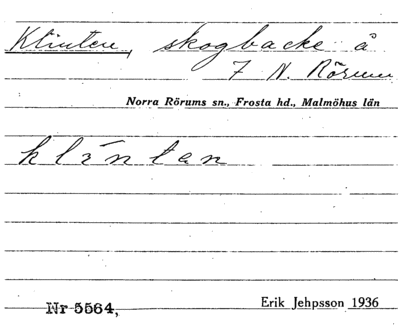 Klinten, skogbacke å
7 N. Rörum
Norra Rörums sn., Frosta hd., Malmöhus län
klìntan
Nr 5564,
Erik Jehpsson 1936